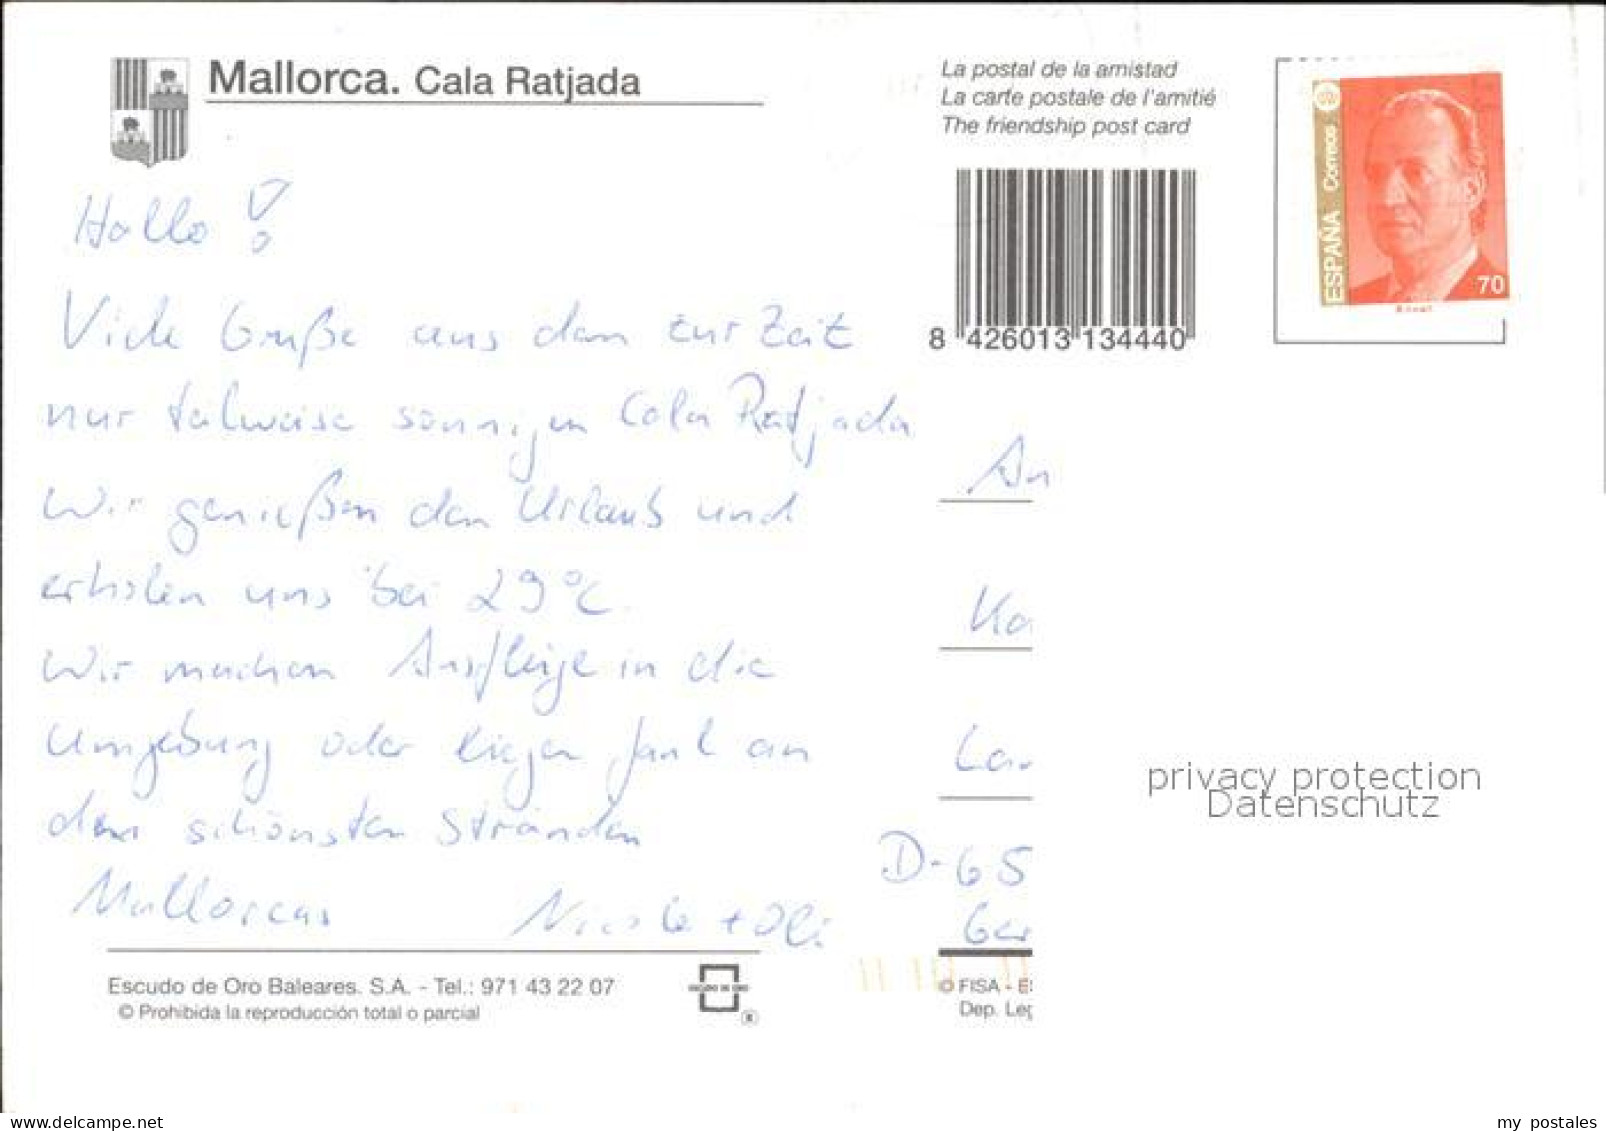 Mallorca. Cala Ratjada
La postal de la amistad
La carte postale de l'amitié
The friendship post card
ESPAÑA Correos
70
8 426013 134440
Hallo !
Viele Grüße aus dem zur Zeit
nur teilweise sonnigen Cala Ratjada
Wir genießen den Urlaub und
erholen uns bei 29°C.
Wir machen Ausflüge in die
Umgebung oder liegen faul an
den schönsten Stränden
Mallorcas Nicole + Oli
An
Ka
Lan
D-65
Ger
privacy protection
Datenschutz
Escudo de Oro Baleares. S.A. - Tel.: 971 43 22 07
© Prohibida la reproducción total o parcial
© FISA - E
Dep. Leg
my postales